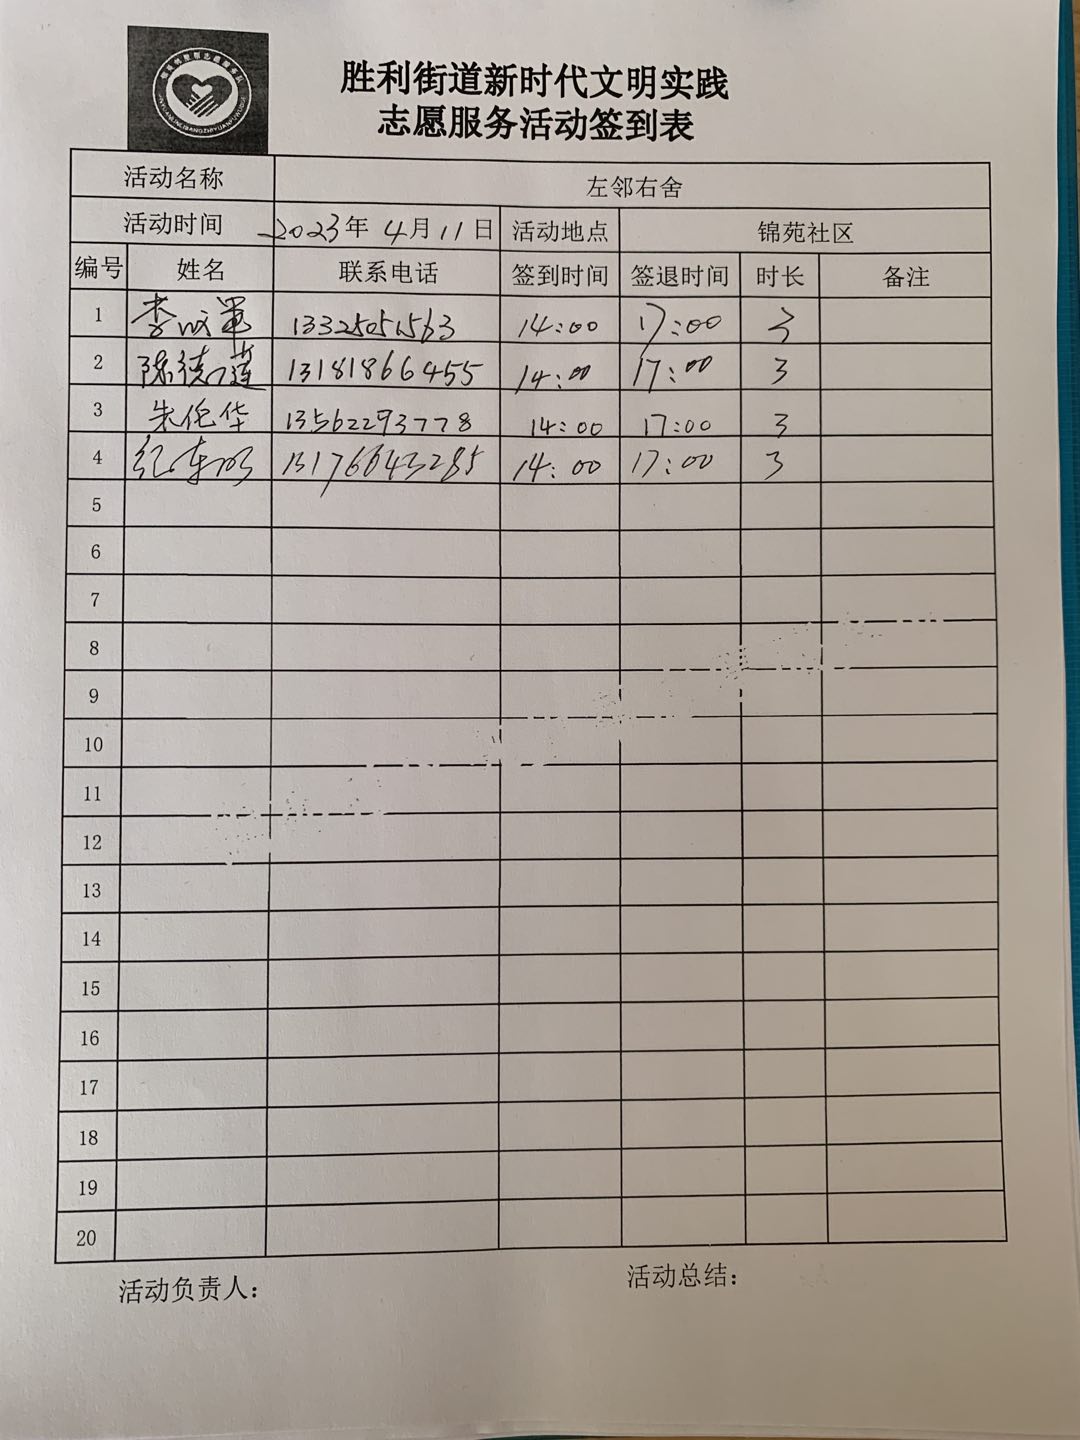 胜利街道新时代文明实践
志愿服务活动签到表
活动名称 左邻右舍
活动时间 2023年 4月11日 活动地点 锦苑社区
编号 姓名 联系电话 签到时间 签退时间 时长 备注
1 李 军 14:00 17:00 3
2 陈德莲 13181866455 14:00 17:00 3
3 朱伦华 13562293778 14:00 17:00 3
4 纪东明 13176643285 14:00 17:00 3
5
6
7
8
9
10
11
12
13
14
15
16
17
18
19
20
活动负责人： 活动总结：